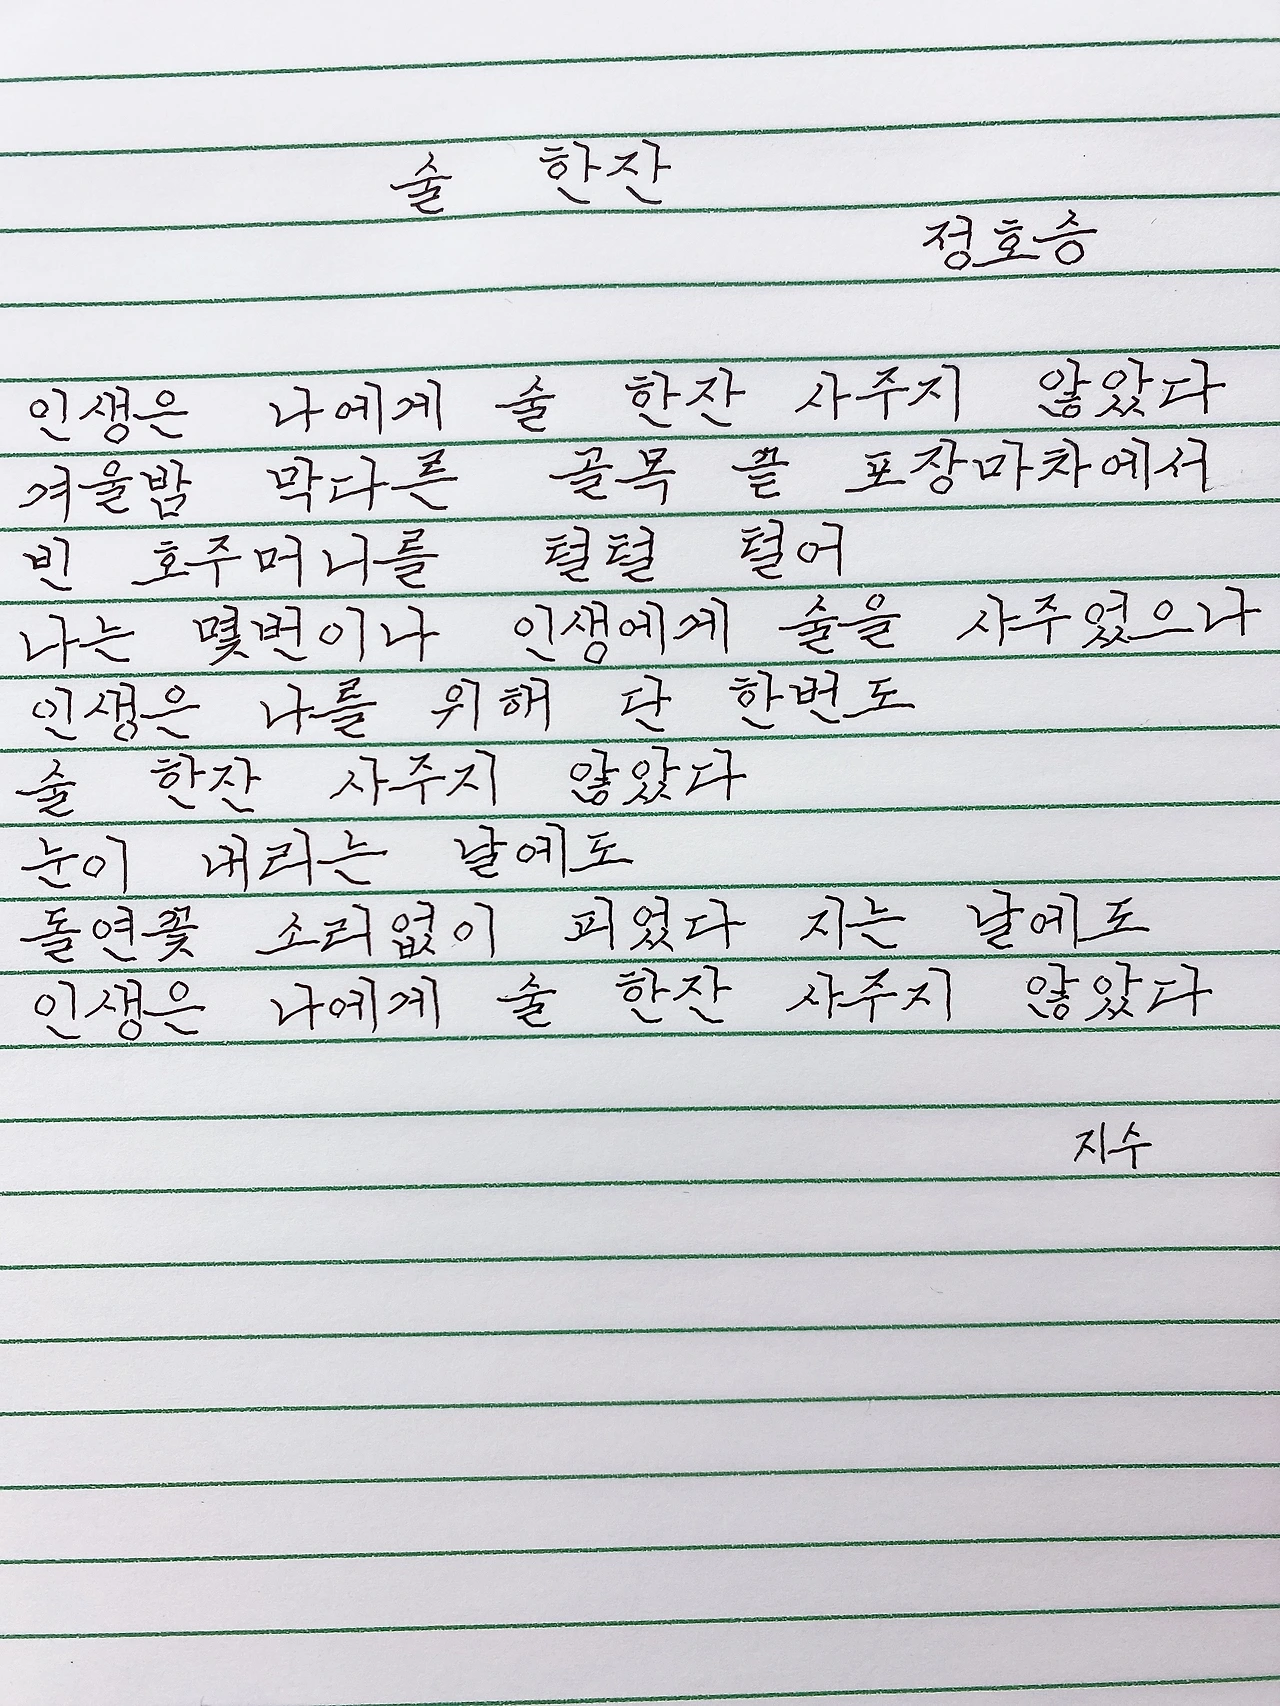 술 한잔
정호승
인생은 나에게 술 한잔 사주지 않았다
겨울밤 막다른 골목 끝 포장마차에서
빈 호주머니를 털털 털어
나는 몇번이나 인생에게 술을 사주었으나
인생은 나를 위해 단 한번도
술 한잔 사주지 않았다
눈이 내리는 날에도
돌연꽃 소리없이 피었다 지는 날에도
인생은 나에게 술 한잔 사주지 않았다
지수